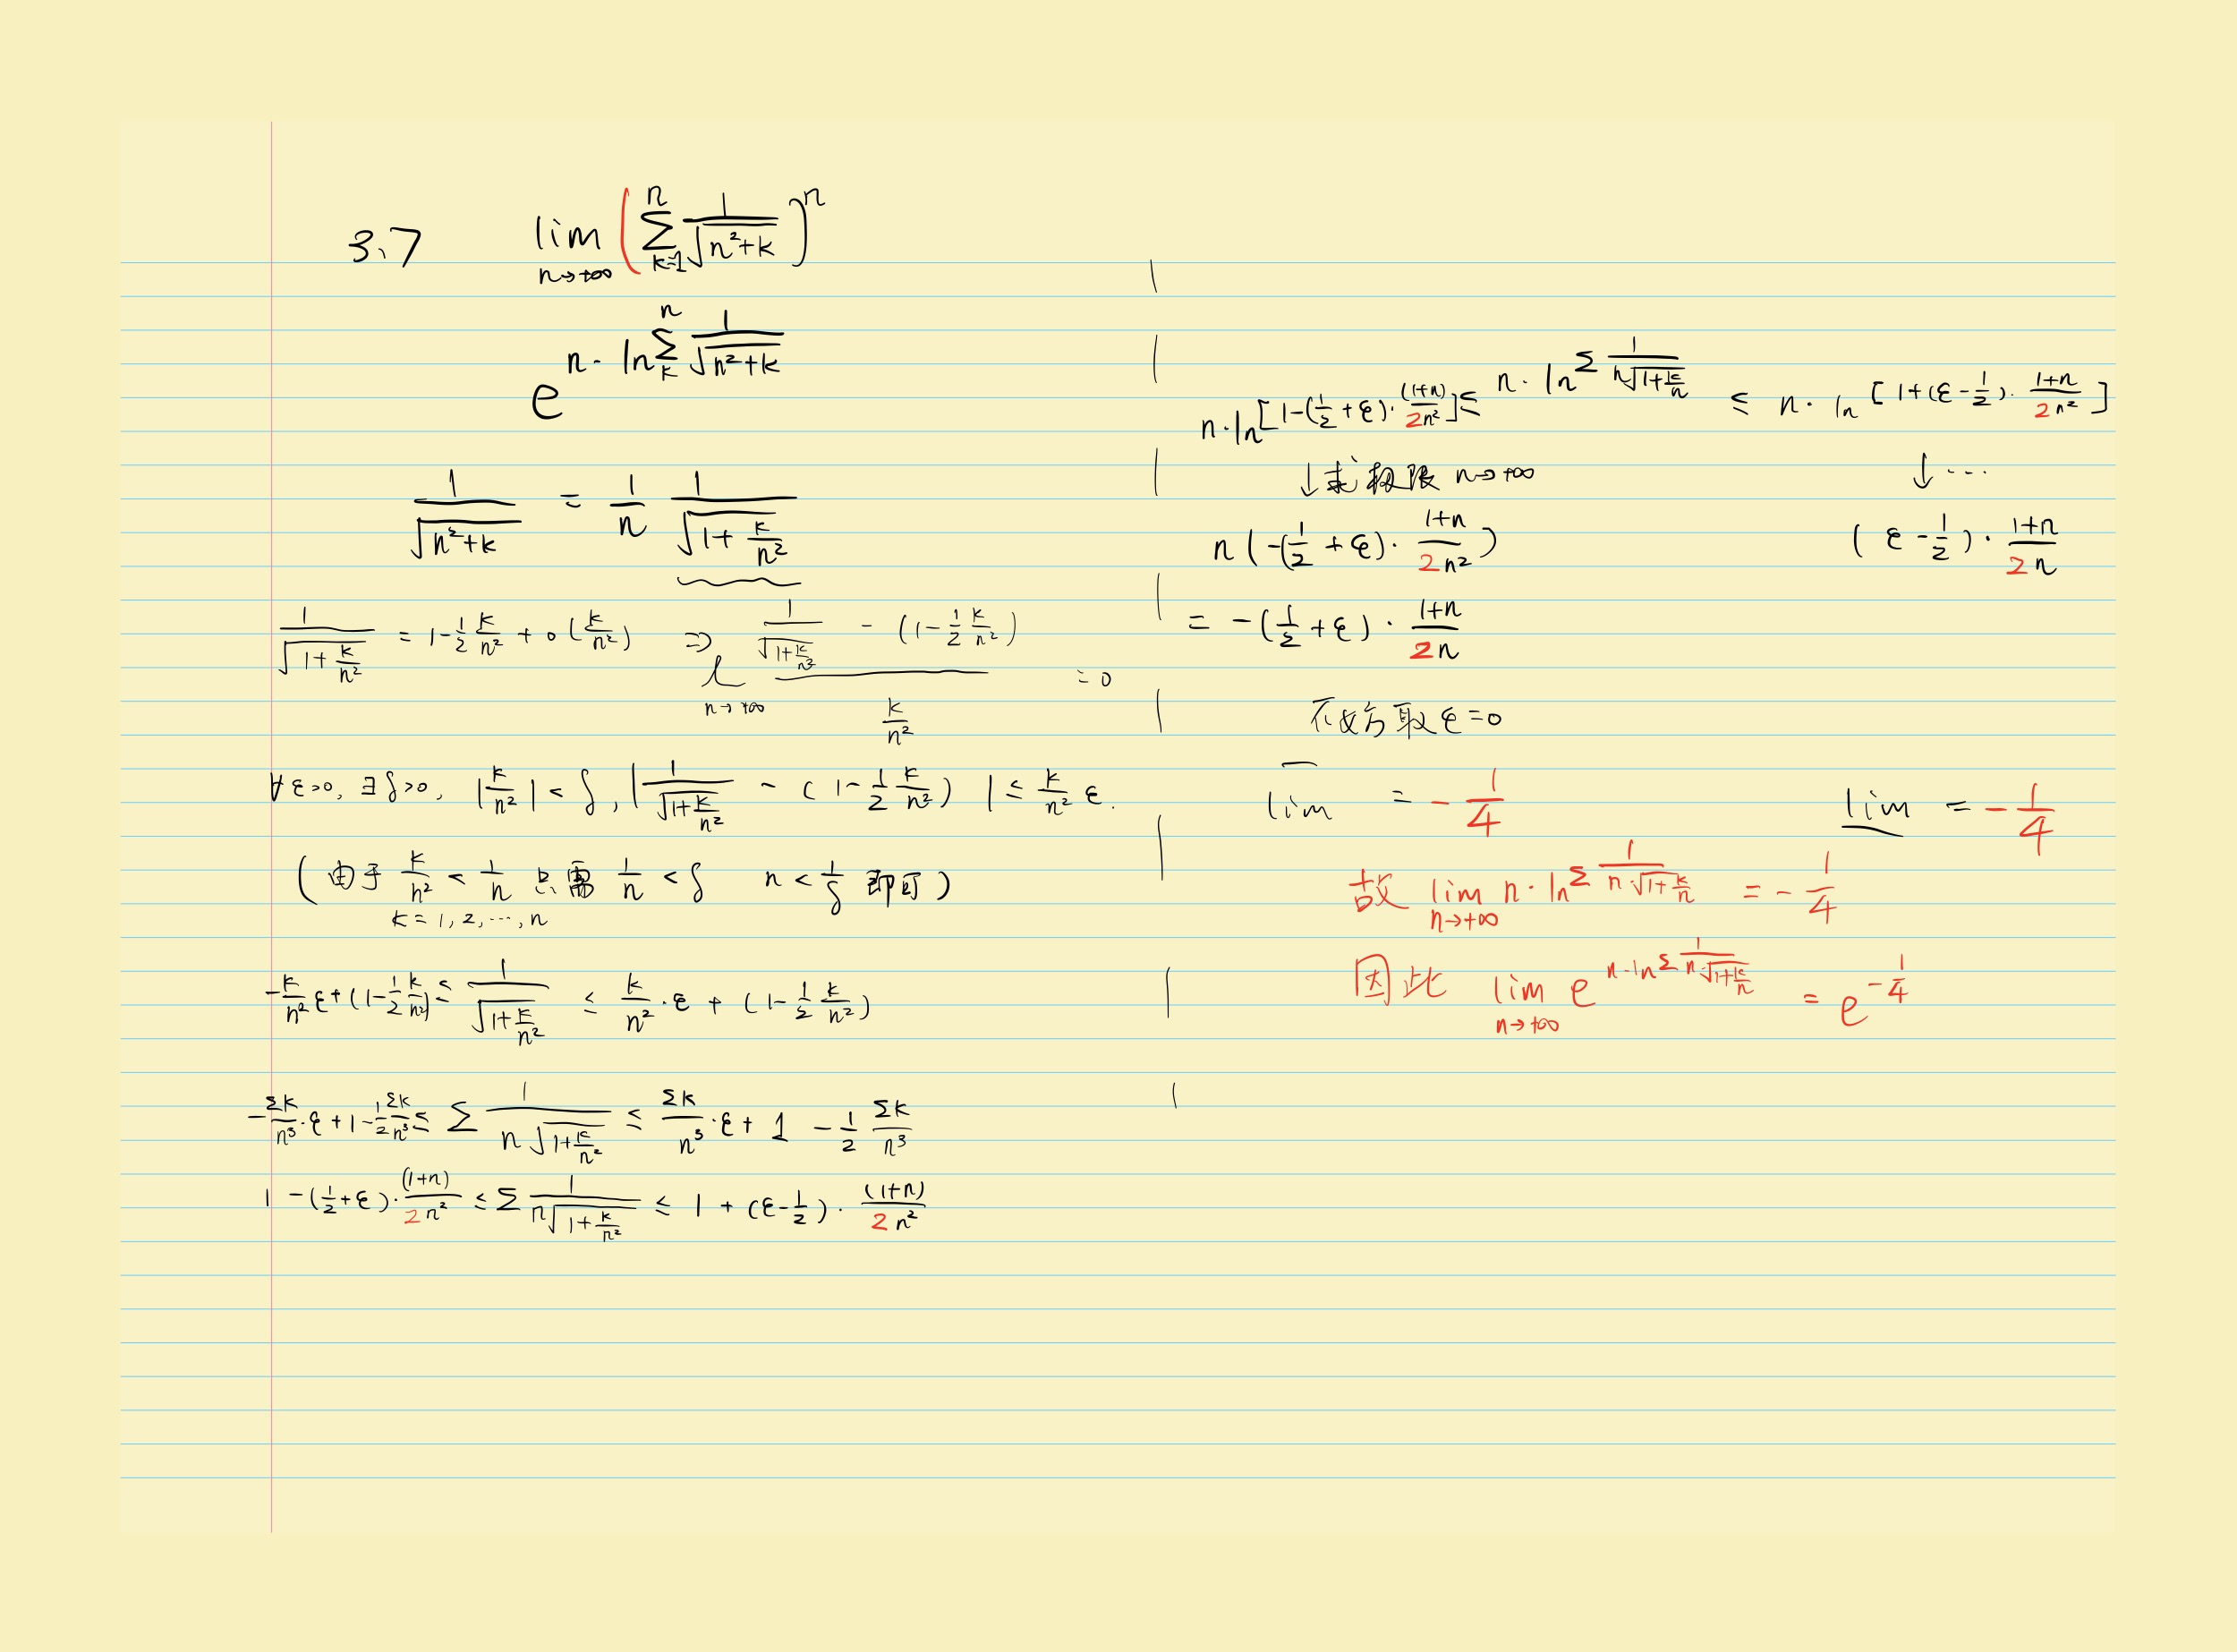 3.7 lim_{n→+∞} ( ∑_{k=1}^{n} 1/√(n²+k) )^n
e^{n · ln ∑_{k}^{n} 1/√(n²+k)}
1/√(n²+k) = 1/n 1/√(1+k/n²)
1/√(1+k/n²) = 1-1/2 k/n² + o(k/n²) ⇒ l_{n→+∞} (1/√(1+k/n²) - (1-1/2 k/n²)) / (k/n²) = 0
∀ε>0, ∃δ>0, |k/n²| < δ, |1/√(1+k/n²) - (1-1/2 k/n²)| ≤ k/n² ε.
(由于 k/n² < 1/n 只需 1/n < δ n < 1/δ 即可)
k=1,2,…,n
-k/n² ε+(1-1/2 k/n²) ≤ 1/√(1+k/n²) ≤ k/n² · ε + (1-1/2 k/n²)
-∑k/n³ · ε+1-1/2 ∑k/n³ ≤ ∑ 1/(n√(1+k/n²)) ≤ ∑k/n³ · ε+ 1 - 1/2 ∑k/n³
1 -(1/2+ε) · (1+n)/2n² ≤ ∑ 1/(n√(1+k/n²)) ≤ 1 + (ε-1/2) · (1+n)/2n²
n · ln[1-(1/2+ε) · (1+n)/2n²] ≤ n · ln ∑ 1/(n√(1+k/n)) ≤ n · ln [1+(ε-1/2) · (1+n)/2n²]
↓求极限 n→+∞ ↓ …
n (-(1/2+ε) · (1+n)/2n²) (ε-1/2) · (1+n)/2n
= -(1/2+ε) · (1+n)/2n
不妨取ε=0
l̅i̅m̅ = -1/4 l̲i̲m̲ = -1/4
故 lim_{n→+∞} n · ln ∑ 1/(n√(1+k/n)) = -1/4
因此 lim_{n→+∞} e^{n·ln ∑ 1/(n·√(1+k/n))} = e^{-1/4}